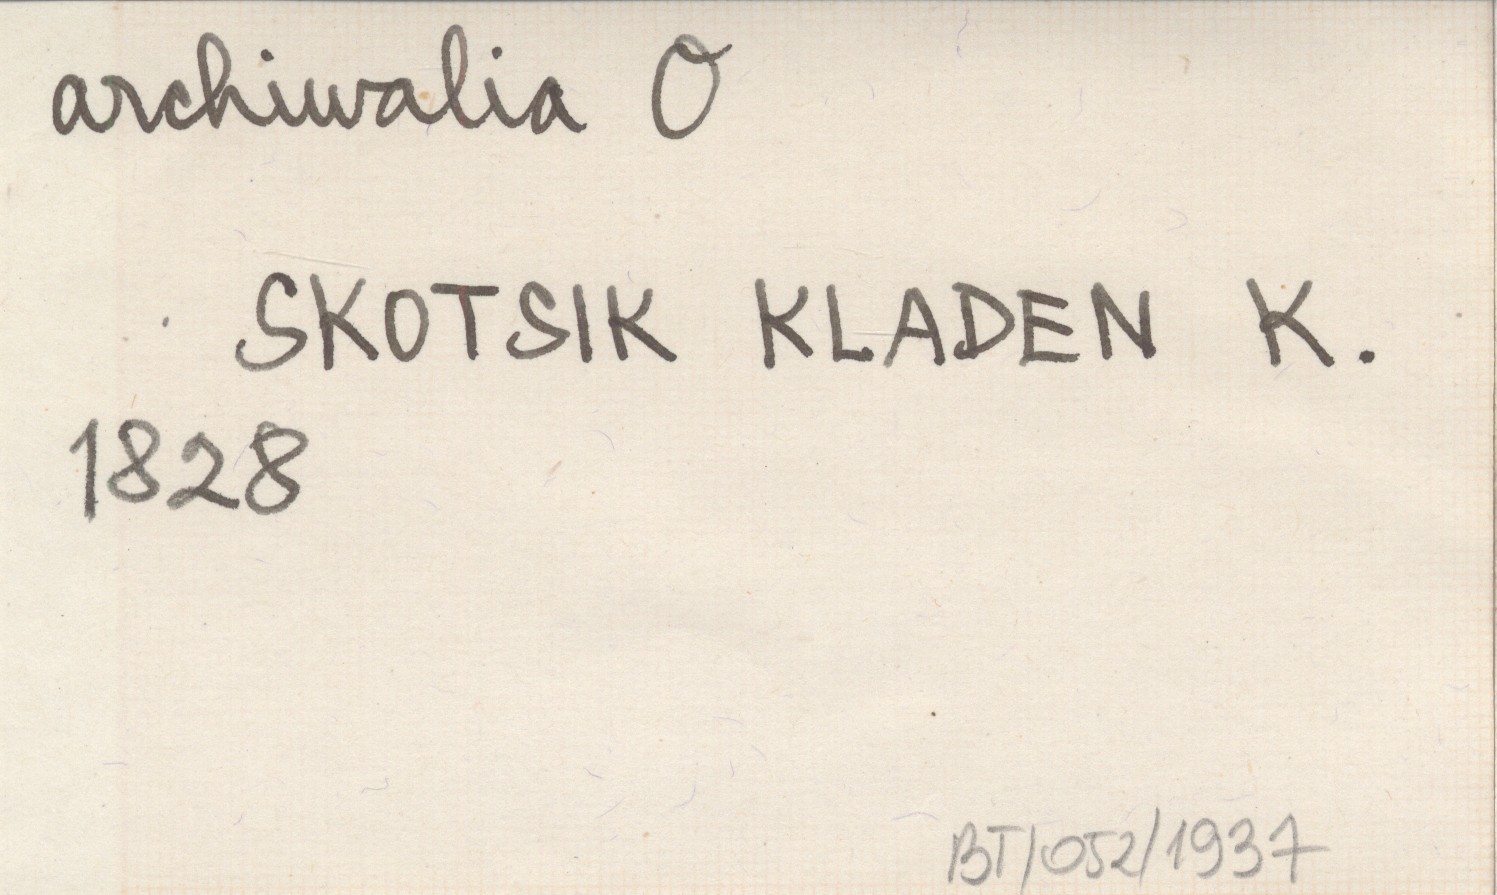 archiwalia O
SKOTSIK KLADEN K.
1828
BT/052/1937